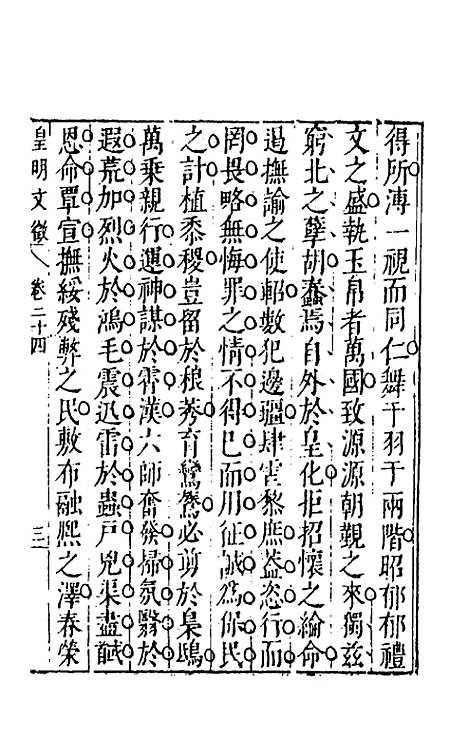 得所溥一視而同仁舞干羽于兩階昭郁郁禮
文之盛執玉帛者萬國致源源朝覲之來獨兹
窮北之孽胡蠢焉自外於皇化拒招懷之綸命
遏撫諭之使軺數犯邊疆肆害黎庶益恣行而
罔畏略無悔罪之情不得已而用征誠為保民
之計植黍稷豈留於稂莠育鸞鳳必剪於梟鴟
萬乘親行運神謀於霄漢六師奮發掃氛翳於
遐荒加烈火於鴻毛震迅雷於蟲戶兇渠盡馘
恩命覃宣撫綏殘弊之民敷布融熙之澤春榮
皇明文徵 卷二十四 三